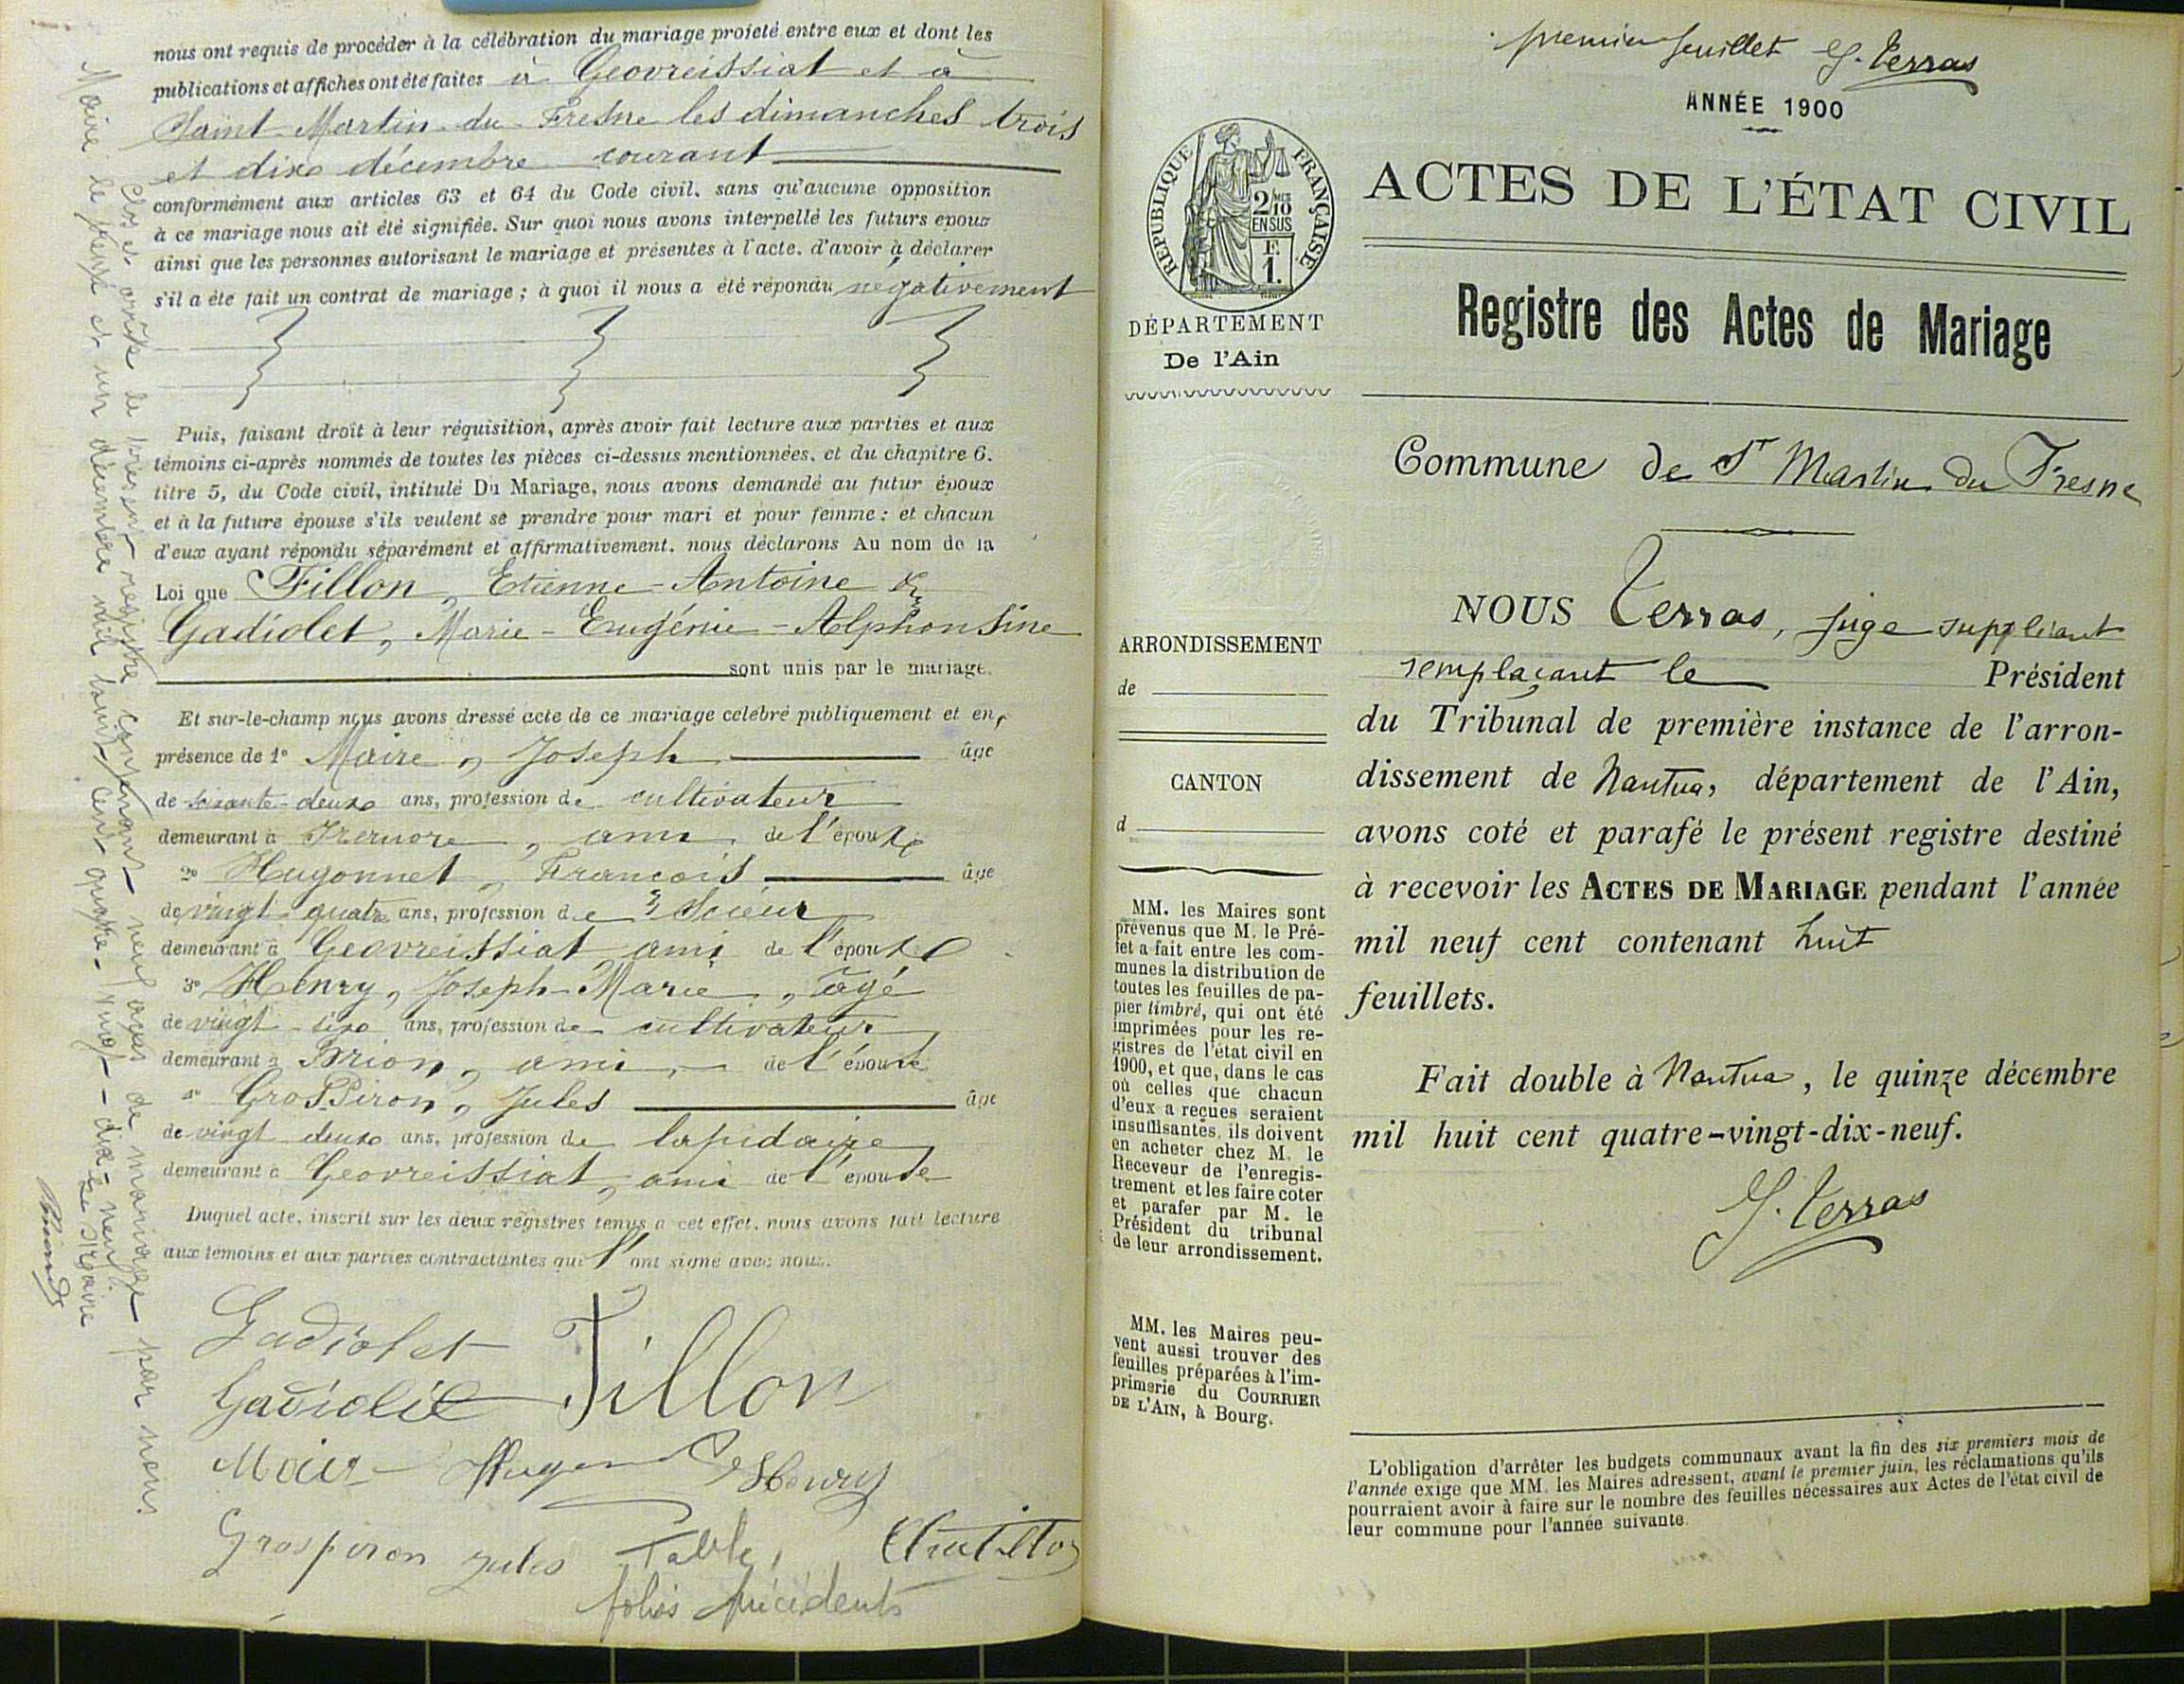 nous ont requis de procéder à la célébration du mariage projeté entre eux et dont les
publications et affiches ont été faites à Geovreissiat et à
Saint Martin du Fresne les dimanches trois
et dix décembre courant
conformément aux articles 63 et 64 du Code civil, sans qu'aucune opposition
à ce mariage nous ait été signifiée. Sur quoi nous avons interpellé les futurs epoux
ainsi que les personnes autorisant le mariage et présentes à l'acte, d'avoir à déclarer
s'il a été fait un contrat de mariage ; à quoi il nous a été répondu négativement
Puis, faisant droit à leur réquisition, après avoir fait lecture aux parties et aux
témoins ci-après nommés de toutes les pièces ci-dessus mentionnées, et du chapitre 6,
titre 5, du Code civil, intitulé Du Mariage, nous avons demandé au futur époux
et à la future épouse s'ils veulent se prendre pour mari et pour femme : et chacun
d'eux ayant répondu séparément et affirmativement, nous déclarons Au nom de la
Loi que Fillon, Etienne-Antoine &
Gadiolet, Marie-Eugénie-Alphonsine
sont unis par le mariage.
Et sur-le-champ nous avons dressé acte de ce mariage celebré publiquement et en
présence de 1° Maire, Joseph âge
de soixante-deux ans, profession de cultivateur
demeurant à ami de l'épouse
2° Hugonnet, François âge
de vingt quatre ans, profession de Scieur
demeurant à Geovreissiat ami de l'épouse
3° Henry, Joseph-Marie, âgé
de vingt-six ans, profession de cultivateur
demeurant à Brion, ami, de l'épouse
4° GrosPiron, Jules âge
de vingt deux ans, profession de lapidaire
demeurant à Geovreissiat, ami de l'épouse
Duquel acte, inscrit sur les deux régistres tenus a cet effet, nous avons fait lecture
aux témoins et aux parties contractantes qui l'ont signé avec nous.
Gadiolet
Fillon
Gadiolet
Maire Hugonnet Henry
Grospiron Jules
Table,
folios précédents
Clos et arrêté le présent registre contenant neuf actes de mariage par nous
Maire le trente et un décembre mil huit cent quatre-vingt-dix-neuf.
Le Maire
premier feuillet G. Terras
ANNÉE 1900
ACTES DE L'ÉTAT CIVIL
RÉPUBLIQUE FRANÇAISE
2/10 MES
EN SUS
F.
1.
DÉPARTEMENT
De l'Ain
Registre des Actes de Mariage
Commune de St Martin du Fresne
NOUS Terras, juge suppléant
remplaçant le Président
du Tribunal de première instance de l'arron-
dissement de Nantua, département de l'Ain,
avons coté et parafé le présent registre destiné
à recevoir les ACTES DE MARIAGE pendant l'année
mil neuf cent contenant huit
feuillets.
Fait double à Nantua, le quinze décembre
mil huit cent quatre-vingt-dix-neuf.
G. Terras
ARRONDISSEMENT
de
CANTON
d
MM. les Maires sont
prévenus que M. le Pré-
fet a fait entre les com-
munes la distribution de
toutes les feuilles de pa-
pier timbré, qui ont été
imprimées pour les re-
gistres de l'état civil en
1900, et que, dans le cas
où celles que chacun
d'eux a reçues seraient
insuffisantes, ils doivent
en acheter chez M. le
Receveur de l'enregis-
trement et les faire coter
et parafer par M. le
Président du tribunal
de leur arrondissement.
MM. les Maires peu-
vent aussi trouver des
feuilles préparées à l'im-
primerie du COURRIER
DE L'AIN, à Bourg.
L'obligation d'arrêter les budgets communaux avant la fin des six premiers mois de
l'année exige que MM. les Maires adressent, avant le premier juin, les réclamations qu'ils
pourraient avoir à faire sur le nombre des feuilles nécessaires aux Actes de l'état civil de
leur commune pour l'année suivante.